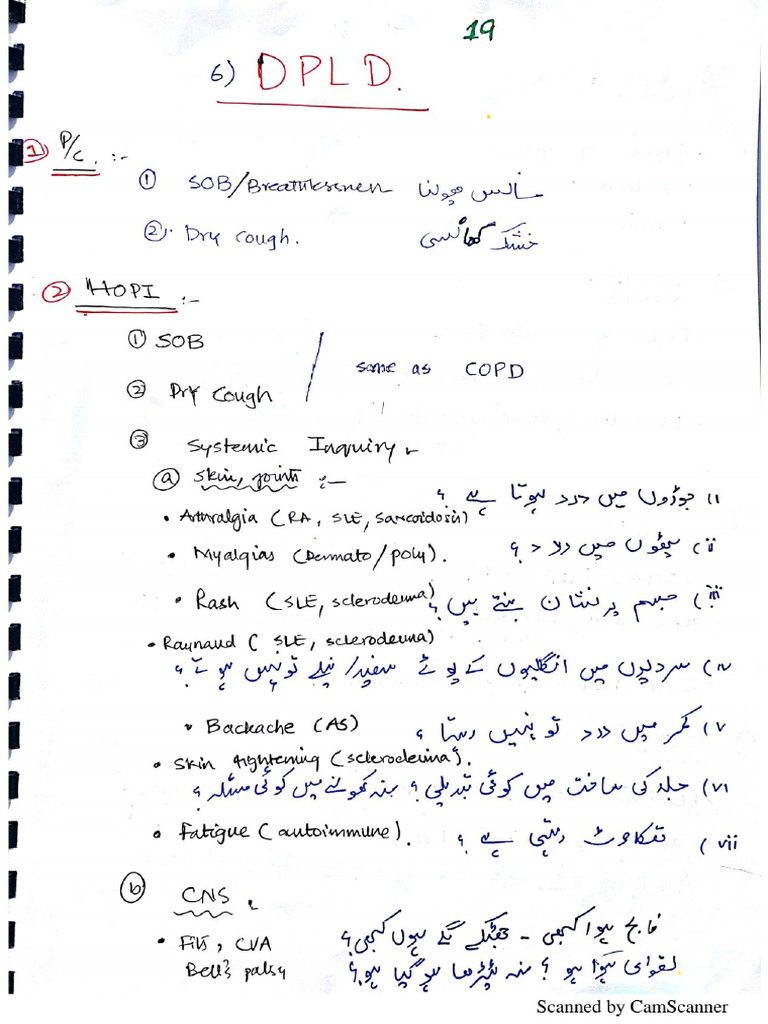 19
6) DPLD.
1 P/C. :-
① SOB/Breathlessness سانس پھولنا
②. Dry cough. خشک کھانسی
2 HOPI :-
① SOB
same as COPD
② Dry Cough
③ Systemic Inquiry
ⓐ Skin, joints :-
i) جوڑوں میں درد ہوتا ہے ؟
• Arthralgia (RA, SLE, Sarcoidosis)
• Myalgias (Dermato/poly). ii) پٹھوں میں درد ؟
• Rash (SLE, scleroderma) iii) جسم پر نشان بنتے ہیں ؟
• Raynaud ( SLE, scleroderma)
iv) سردیوں میں انگلیوں کے پوٹے سفید/نیلے تو نہیں ہوتے ؟
• Backache (AS) v) کمر میں درد تو نہیں رہتا ؟
• Skin tightening (scleroderma).
vi) جلد کی ساخت میں کوئی تبدیلی ؟ منہ کھولنے میں کوئی مسئلہ ؟
• Fatigue (autoimmune). vii) تھکاوٹ رہتی ہے ؟
ⓑ CNS
• Fits, CVA فالج ہوا کبھی - جھٹکے لگے ہوں کبھی ؟
Bell's palsy لقوای ہوا ہو ؟ منہ ٹیڑھا ہو گیا ہو ؟
Scanned by CamScanner